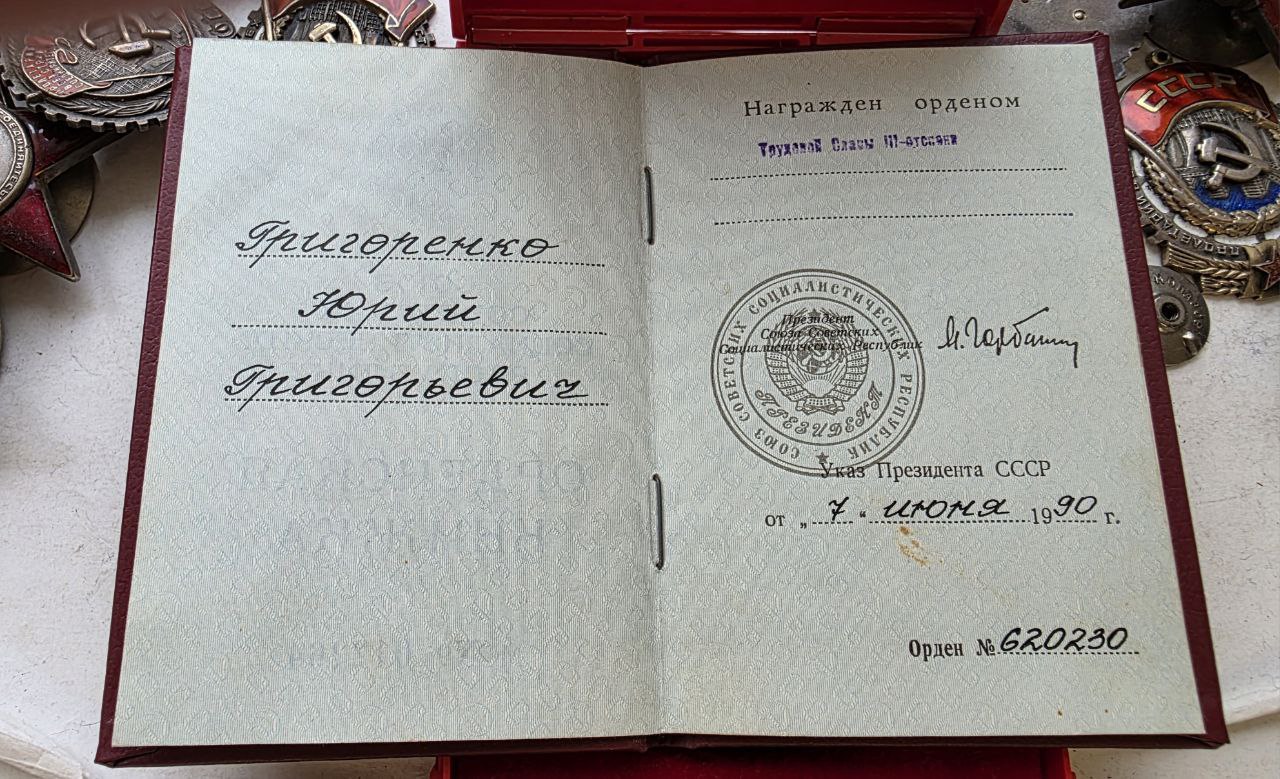 Григоренко
Юрий
Григорьевич
Награжден орденом
Трудовой Славы III-степени
СОЮЗ СОВЕТСКИХ СОЦИАЛИСТИЧЕСКИХ РЕСПУБЛИК
ПРЕЗИДЕНТ
Президент
Союза Советских
Социалистических Республик
М. Горбачев
Указ Президента СССР
от „ 7 “ июня 1990 г.
Орден № 620230
СССР